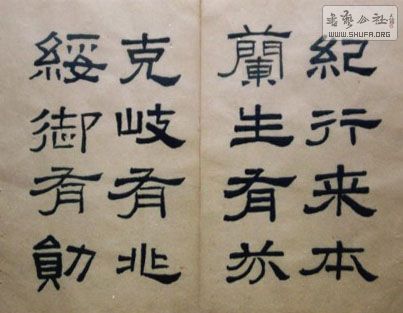 书艺公社
WWW.SHUFA.ORG
紀行来本
蘭生有芬
克岐有兆
綏御有勛